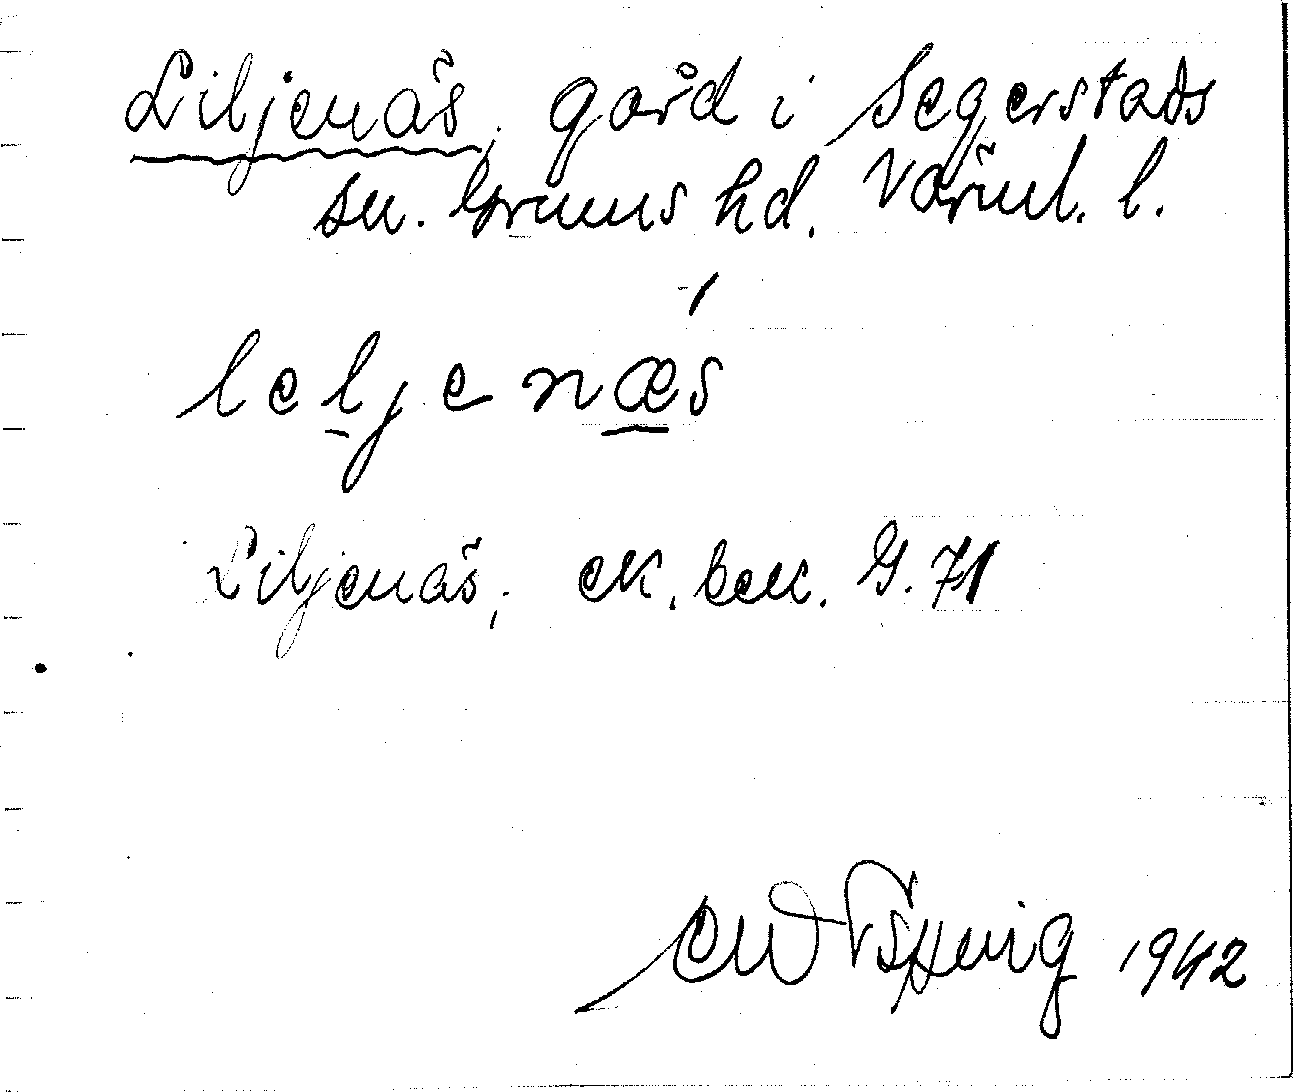 Liljenäs, gård i Segerstads
sn. Grums hd. Värml. l.
leljenæs
Liljenäs, ek. bek. G. 71
1942